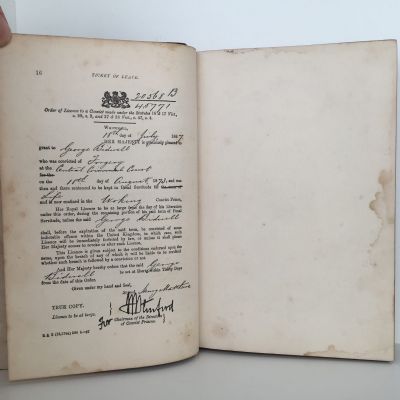 16 TICKET OF LEAVE.
20568 B
45771
Order of Licence to a Convict made under the Statutes 16 & 17 Vict.,
c. 99, s. 9, and 27 & 28 Vict., c. 47, s. 4.
WHITEHALL,
18th day of July 1887.
HER MAJESTY is graciously pleased to
grant to George Bidwell
who was convicted of Forgery
at the Central Criminal Court
for the
on the 18th day of August, 1873, and was
then and there sentenced to be kept in Penal Servitude for the term of
Life
and is now confined in the Woking Convict Prison,
Her Royal Licence to be at large from the day of his liberation
under this order, during the remaining portion of his said term of Penal
Servitude, unless the said George Bidwell
shall, before the expiration of the said term, be convicted of some
indictable offence within the United Kingdom, in which case, such
Licence will be immediately forfeited by law, or unless it shall please
Her Majesty sooner to revoke or alter such Licence.
This Licence is given subject to the conditions endorsed upon the
same, upon the breach of any of which it will be liable to be revoked
whether such breach is followed by a conviction or not.
And Her Majesty hereby orders that the said George
Bidwell be set at liberty within Thirty Days
from the date of this Order.
Given under my hand and Seal,
TRUE COPY.
Licence to be at large.
For
Chairman of the Directors
of Convict Prisons.